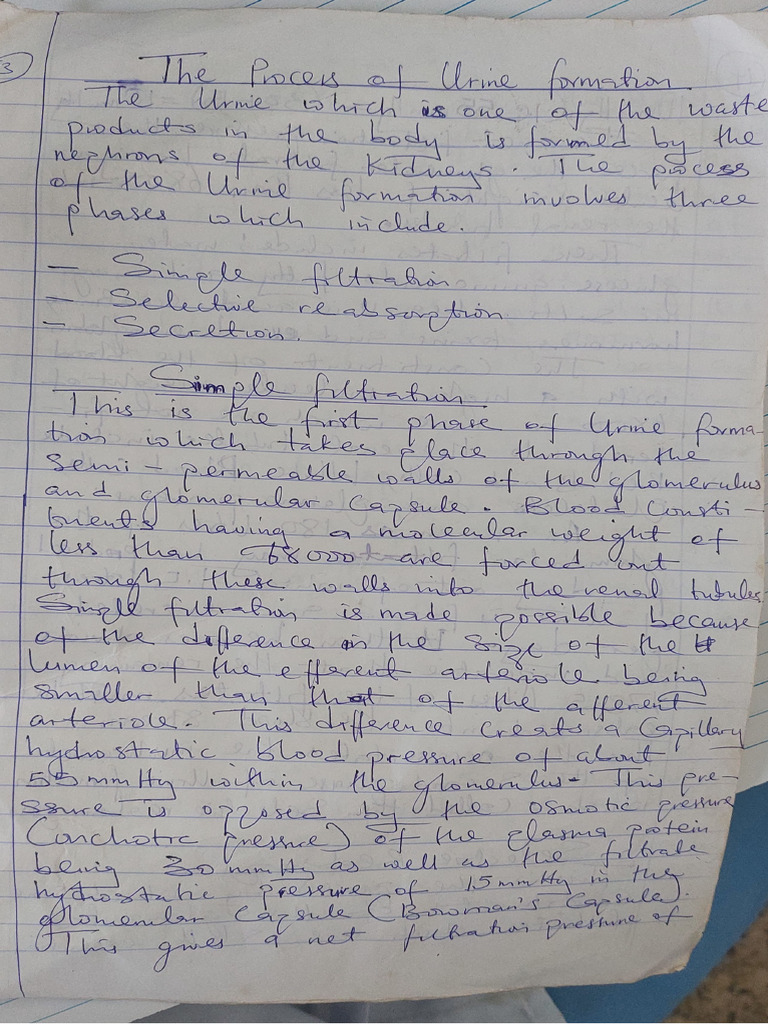 3
The Process of Urine formation.
The Urine which is one of the waste
products in the body is formed by the
nephrons of the Kidneys. The process
of the Urine formation involves three
phases which include.
— Simple filtration
— Selective reabsorption
— Secretion.
Simple filtration
This is the first phase of Urine forma-
tion which takes place through the
semi-permeable walls of the glomerulus
and glomerular Capsule. Blood Consti-
tuents having a molecular weight of
less than 68000 are forced out
through these walls into the renal tubules
Simple filtration is made possible because
of the difference in the size of the
lumen of the efferent arteriole being
smaller than that of the afferent
arteriole. This difference creats a Capillary
hydrostatic blood pressure of about
55mmHg within the glomerulus. This pre-
ssure is opposed by the osmotic pressure
(onchotic pressure) of the plasma protein
being 30mmHg as well as the filtrate
hydrostatic pressure of 15mmHg in the
glomerular Capsule (Bowman's Capsule).
This gives a net filtration pressure of